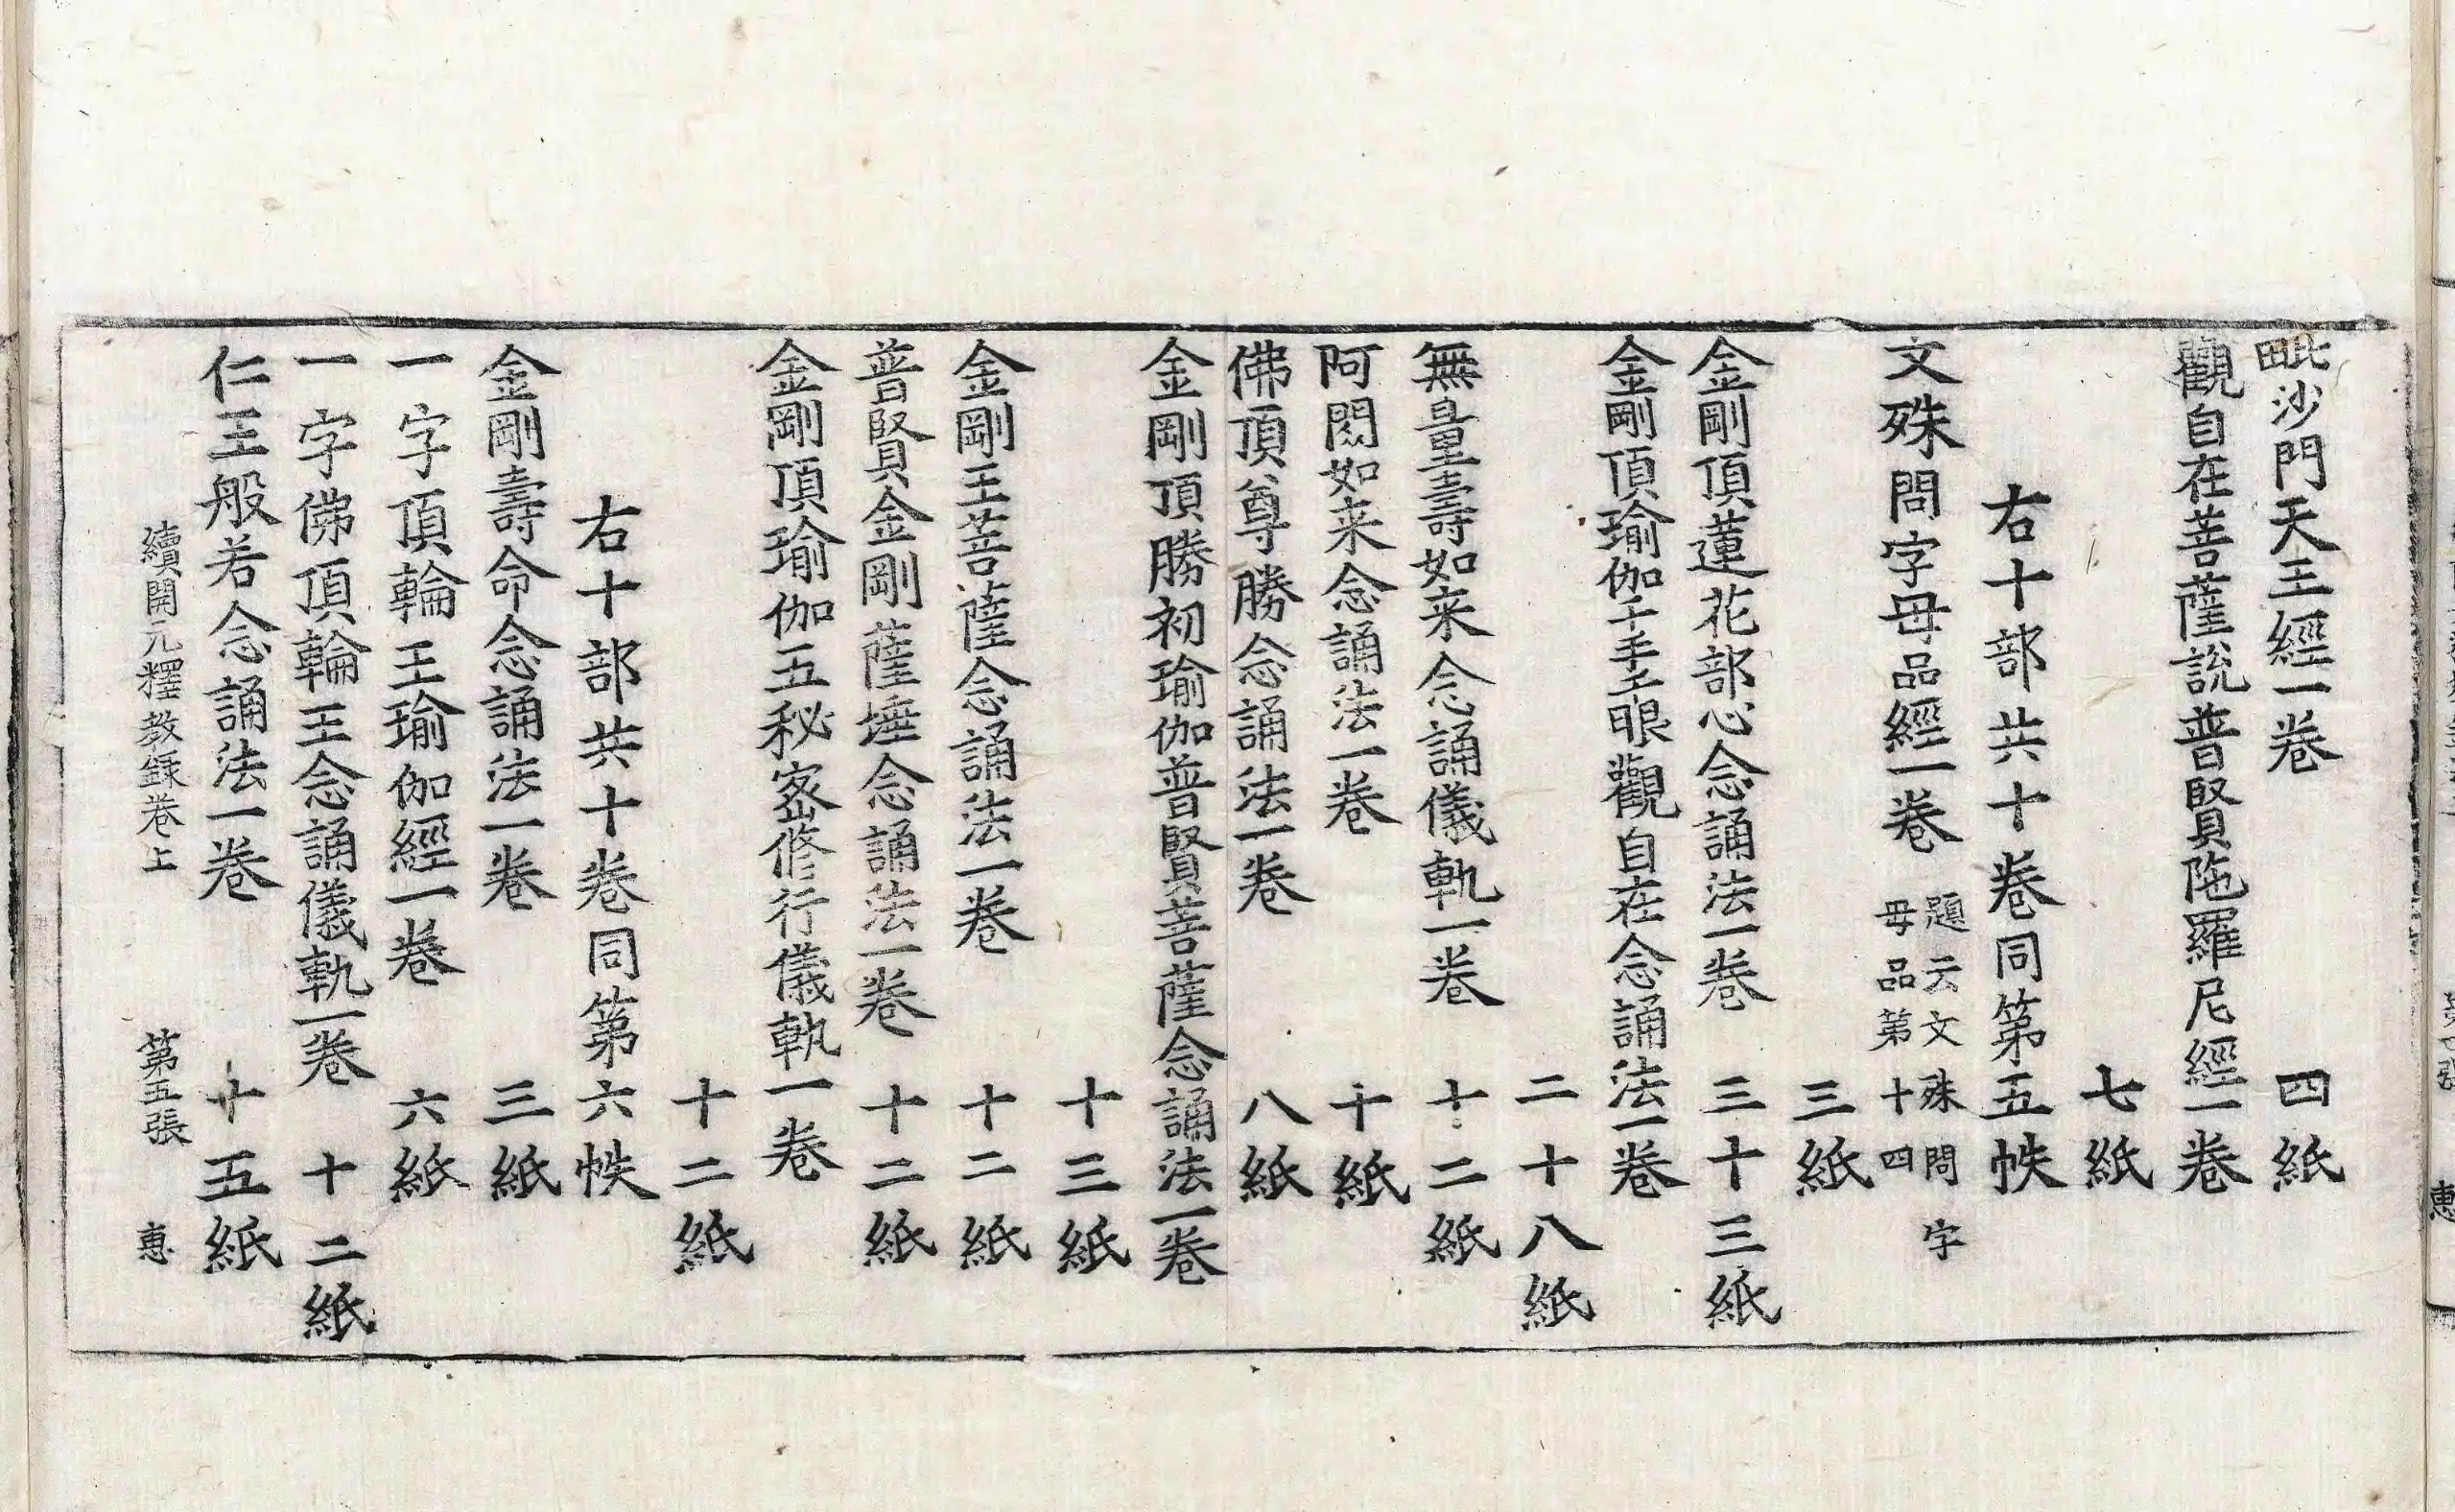 毗沙門天王經一卷　四紙
觀自在菩薩說普賢陁羅尼經一卷
七紙
右十部共十卷同第五帙
文殊問字母品經一卷　題云文殊問字母品第十四
三紙
金剛頂蓮花部心念誦法一卷　三十三紙
金剛頂瑜伽千手千眼觀自在念誦法一卷
二十八紙
無量壽如来念誦儀軌一卷　十二紙
阿閦如来念誦法一卷　十紙
佛頂尊勝念誦法一卷　八紙
金剛頂勝初瑜伽普賢菩薩念誦法一卷
十三紙
金剛王菩薩念誦法一卷　十二紙
普賢金剛薩埵念誦法一卷　十二紙
金剛頂瑜伽五秘密修行儀軌一卷
十二紙
右十部共十卷同第六帙
金剛壽命念誦法一卷　三紙
一字頂輪王瑜伽經一卷　六紙
一字佛頂輪王念誦儀軌一卷　十二紙
仁王般若念誦法一卷　十五紙
續開元釋教録卷上　第五張　惠